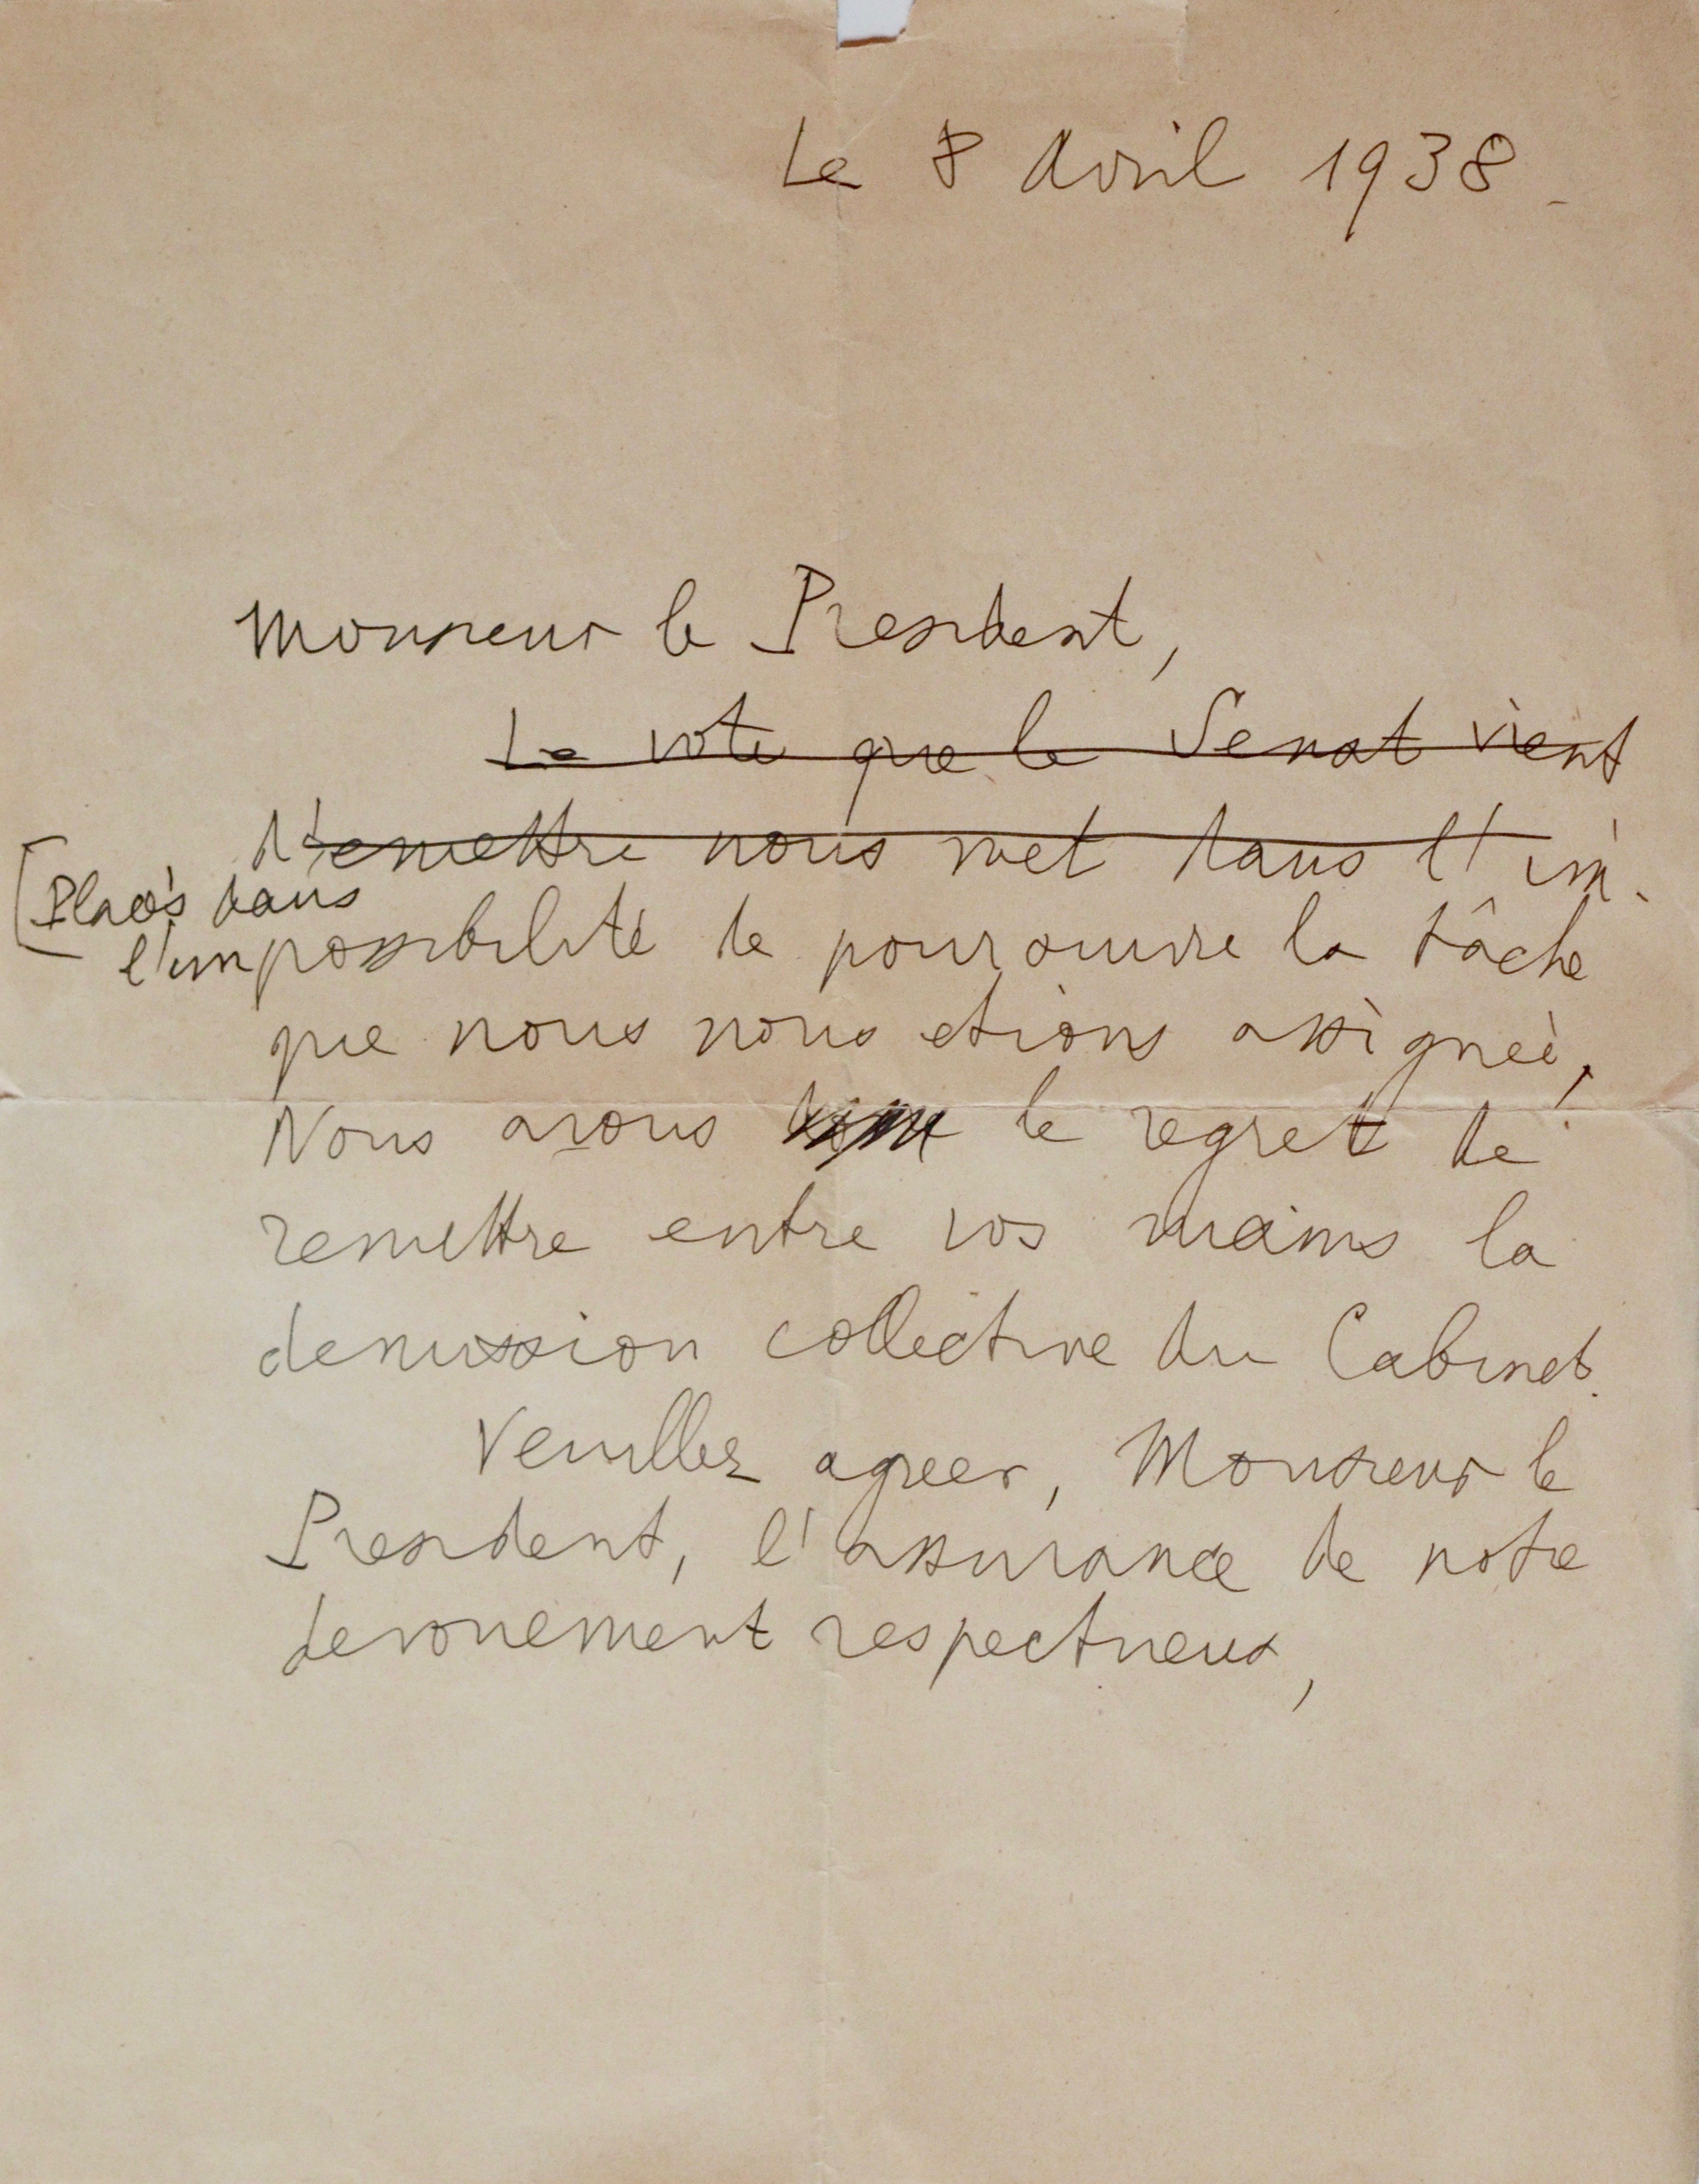 Le 8 Avril 1938.
Monsieur le President,
Le vote que le Senat vient
d'emettre nous met dans l'im-
[Placés dans
l'impossibilité de poursuivre la tâche
que nous nous etions assignée,
Nous avons le regret de
remettre entre vos mains la
demission collective du Cabinet.
Veuillez agreer, Monsieur le
President, l'assurance de notre
devouement respectueux,